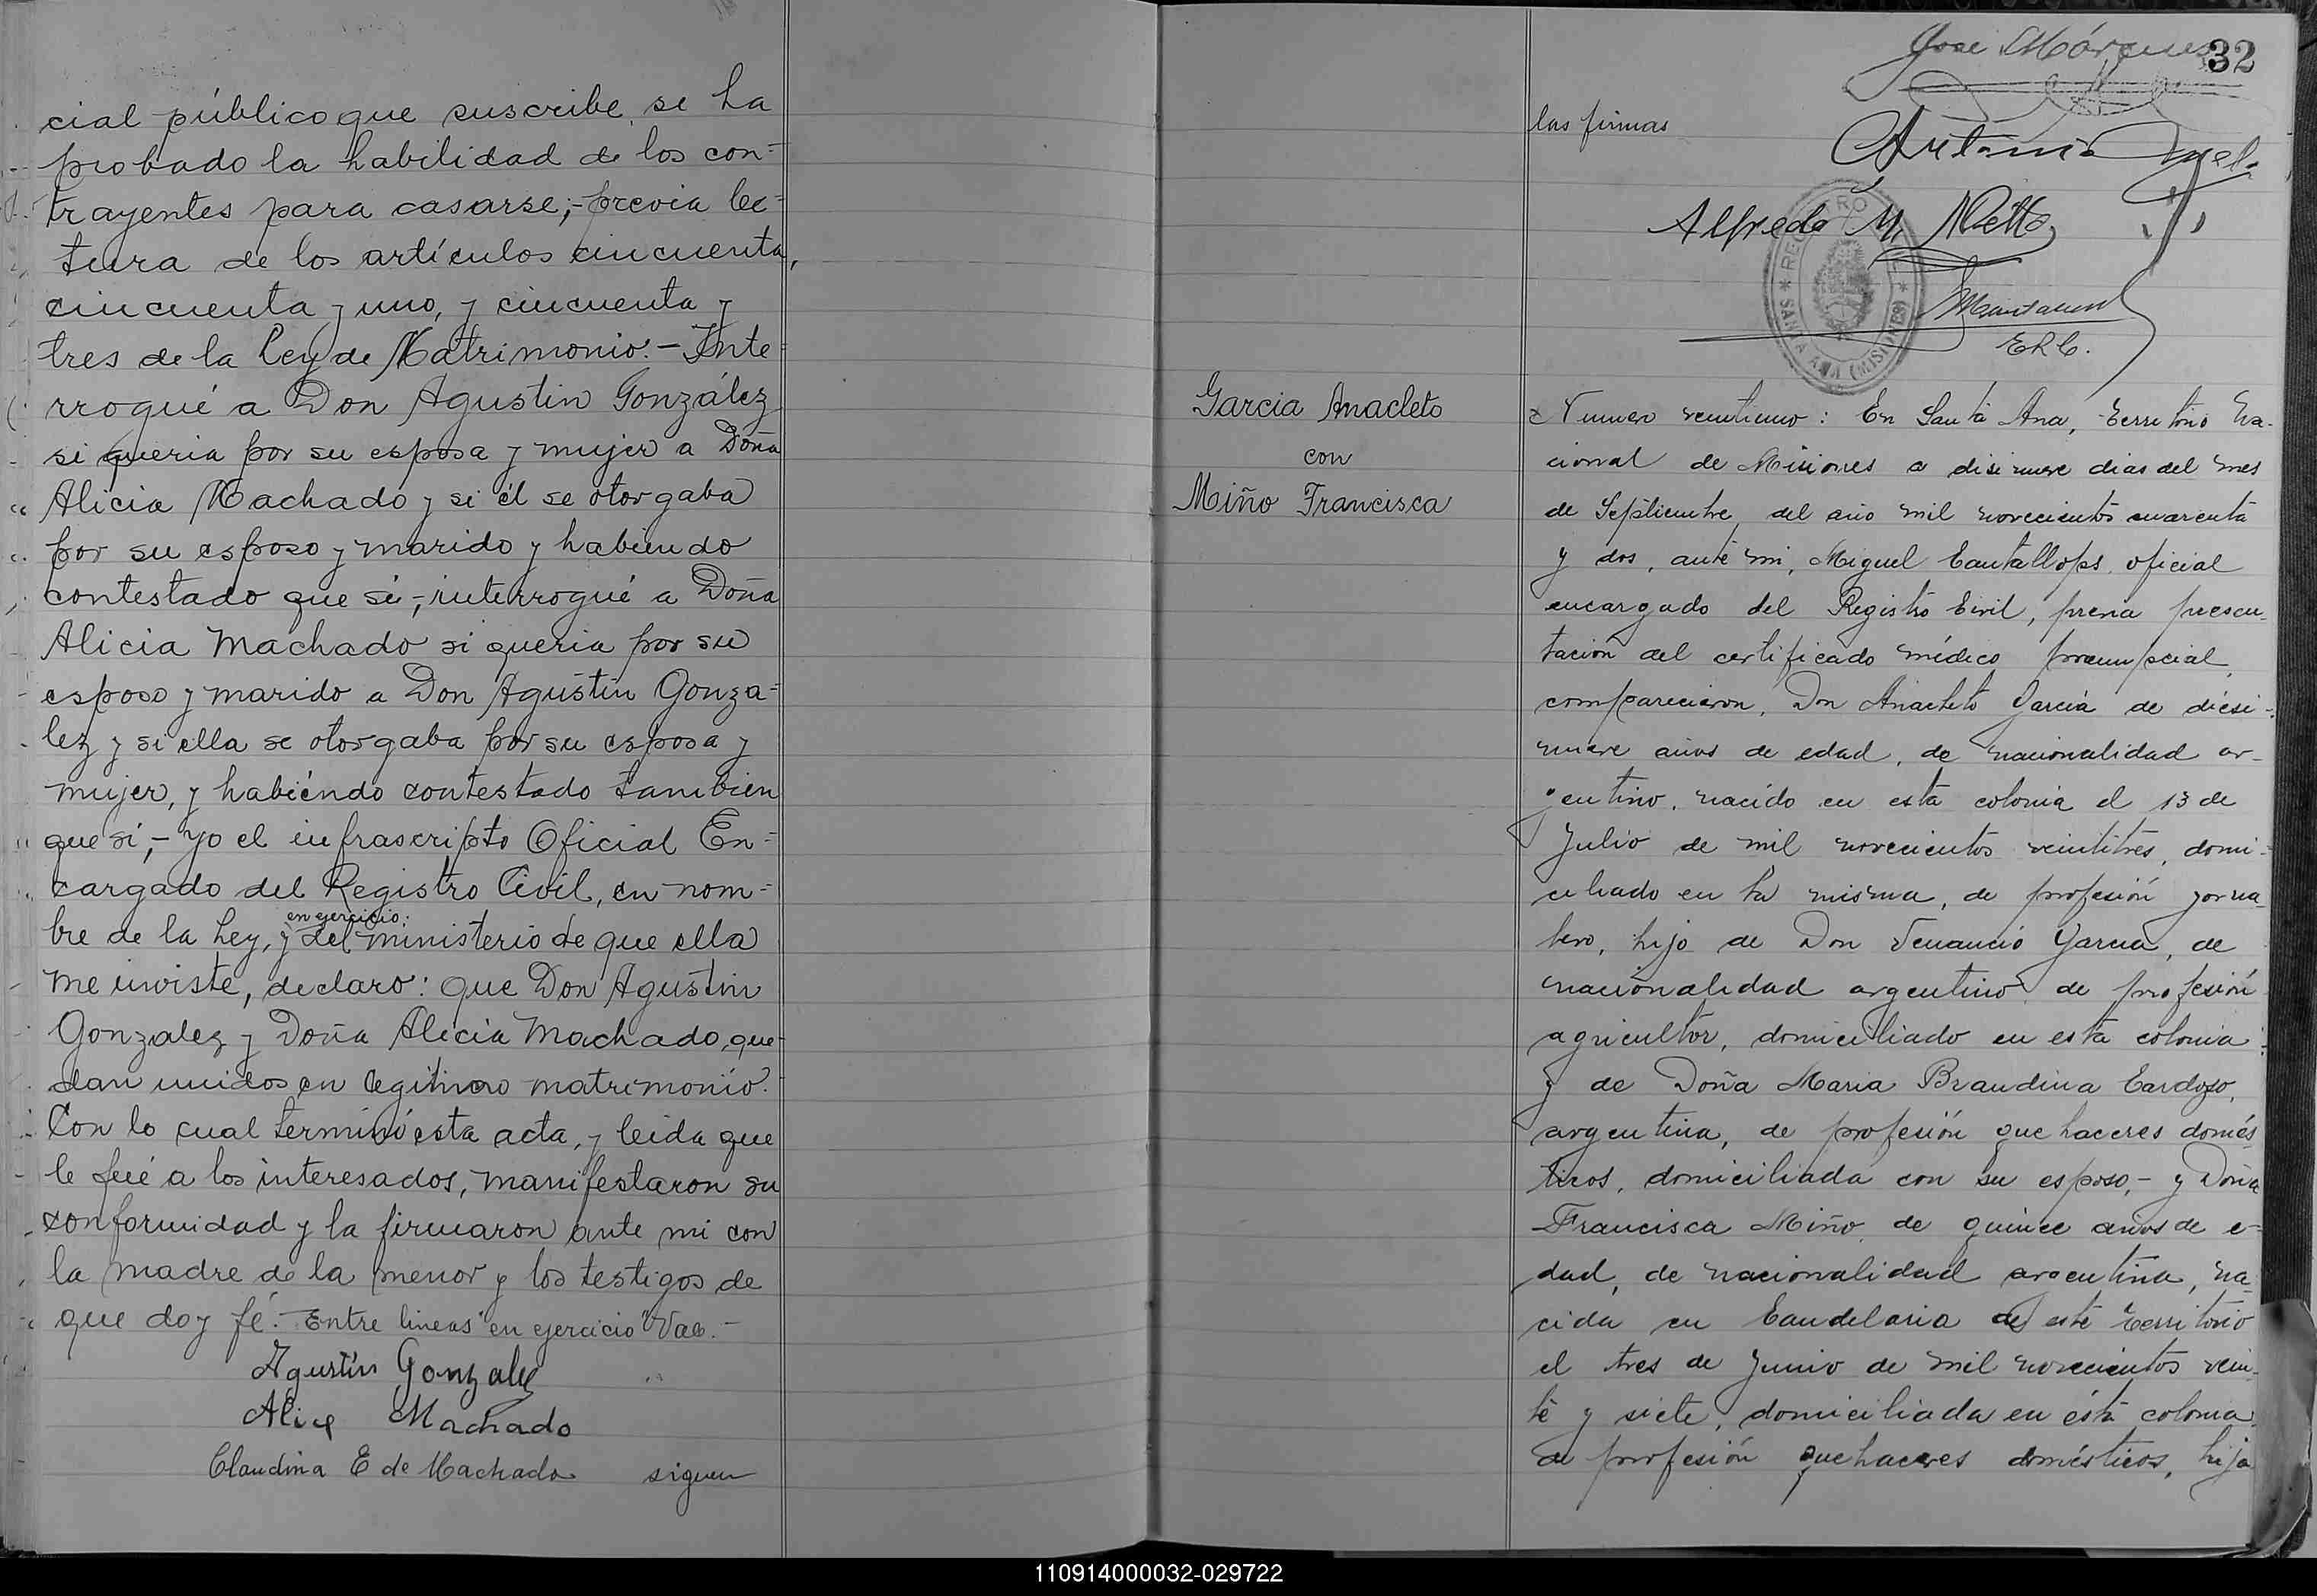 cial público que suscribe, se ha
probado la habilidad de los con=
trayentes para casarse;- previa lec=
tura de los artículos cincuenta,
cincuenta y uno, y cincuenta y
tres de la Ley de Matrimonio.- Inte=
rrogué a Don Agustin González
si queria por su esposa y mujer a Doña
Alicia Machado y si él se otorgaba
por su esposo y marido y habiendo
contestado que si;- interrogué a Doña
Alicia Machado si queria por su
esposo y marido a Don Agustin Gonza=
lez y si ella se otorgaba por su esposa y
mujer, y habiéndo contestado tambien
que si;- Yo el infrascripto Oficial En=
cargado del Registro Civil, en nom=
en ejercicio:
bre de la Ley, y del ministerio de que ella
me inviste, declaro: que Don Agustin
Gonzalez y Doña Alicia Machado, que=
dan unidos en legitimo matrimonio.
Con lo cual terminó esta acta, y leida que
le fué a los interesados, manifestaron su
conformidad y la firmaron ante mi con
la madre de la menor y los testigos de
que doy fé.- Entre lineas "en ejercicio" Vale.-
Agustin Gonzalez
Alicia Machado
Claudina E de Machado siguen
32
Jose Márques
las firmas
Antonio
Alfredo M. Netto
REGISTRO CIVIL
SANTA ANA (MISIONES)
ERC.
Garcia Anacleto
con
Miño Francisca
Numero veintiuno: En Santa Ana, Territorio Na-
cional de Misiones a diesinueve dias del mes
de Séptiembre, del año mil novecientos cuarenta
y dos, ante mi, Miguel Cantallops, oficial
encargado del Registro Civil, previa presen-
tacion del certificado médico prenupcial,
comparecieron, Don Anacleto Garcia de diesi-
nueve años de edad, de nacionalidad ar-
gentino, nacido en esta colonia el 13 de
Julio de mil novecientos veintitres, domi-
ciliado en la misma, de profesión jorna-
lero, hijo de Don Venancio Garcia, de
nacionalidad argentino, de profesión
agricultor, domiciliado en esta colonia
y de Doña Maria Brandina Cardozo,
argentina, de profesión quehaceres domés
ticos, domiciliada con su esposo,- y Doña
Francisca Miño, de quince años de e-
dad, de nacionalidad argentina, na-
cida en Candelaria de este Territorio
el tres de Junio de mil novecientos vein-
te y siete, domiciliada en ésta colonia,
de profesión quehaceres domésticos, hija
110914000032-029722